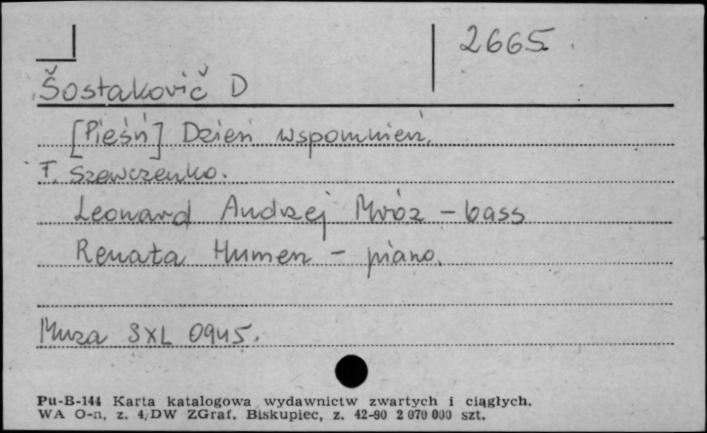 2665.
Šostakovič D
[Pieśń] Dzień wspomnień.
T. Szewczenko.
Leonard Andrzej Mróz – bass
Renata Humen – piano.
Muza SXL 0945.
Pu-B-144 Karta katalogowa wydawnictw zwartych i ciągłych.
WA O-n, z. 4/DW ZGraf. Biskupiec, z. 42-90 2 070 000 szt.